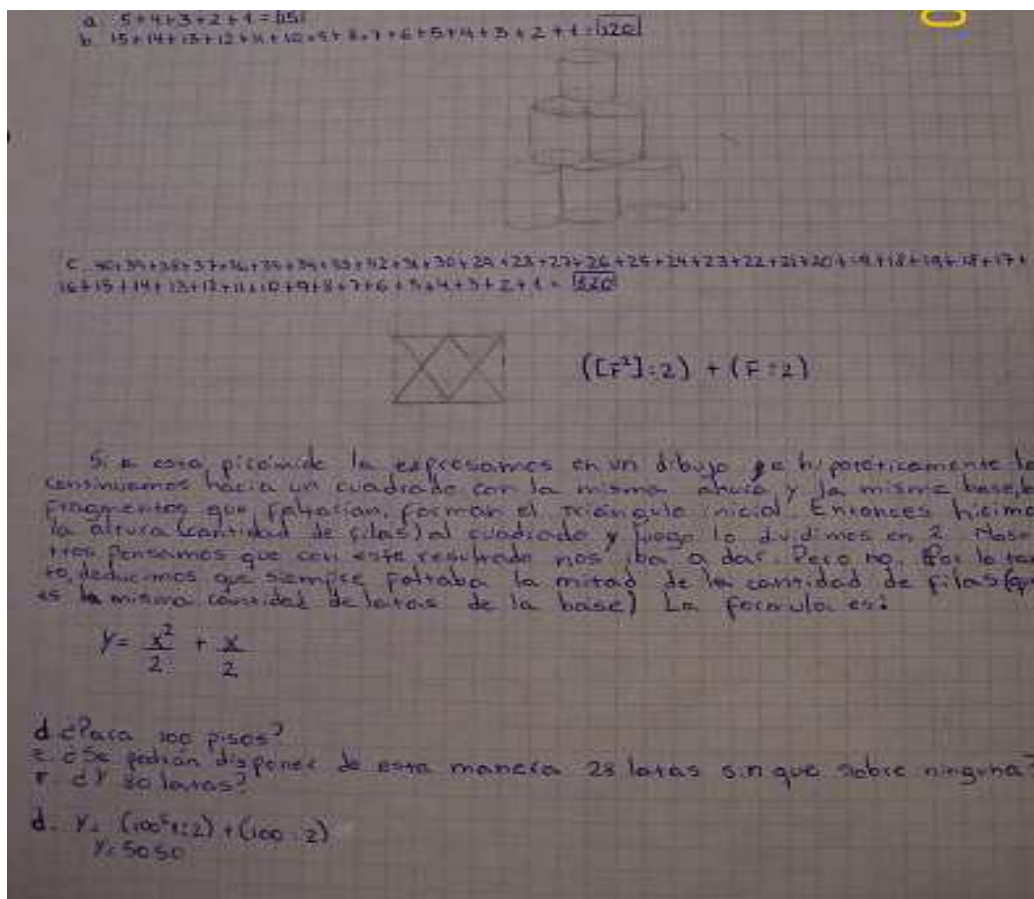 a. 5+4+3+2+1 = 15
b. 15+14+13+12+11+10+9+8+7+6+5+4+3+2+1 = 120
c. 40+39+38+37+36+35+34+33+32+31+30+29+28+27+26+25+24+23+22+21+20+19+18+19+18+17+
16+15+14+13+12+11+10+9+8+7+6+5+4+3+2+1 = 820
([F²]:2) + (F:2)
Si a esta pirámide la expresamos en un dibujo hipotéticamente la
continuamos hacia un cuadrado con la misma altura y la misma base,
fragmentos que faltarían, forman el triángulo inicial. Entonces hicimo
la altura (cantidad de filas) al cuadrado y luego lo dividimos en 2. Noso
tros pensamos que con este resultado nos iba a dar. Pero no. Por lo tan
to, deducimos que siempre faltaba la mitad de la cantidad de filas (que
es la misma cantidad de latas de la base) La formula es:
y = x²/2 + x/2
d. ¿Para 100 pisos?
e. ¿Se podrán disponer de esta manera 28 latas sin que sobre ninguna?
F. ¿Y 80 latas?
d. y= (100²:2) + (100:2)
y= 5050